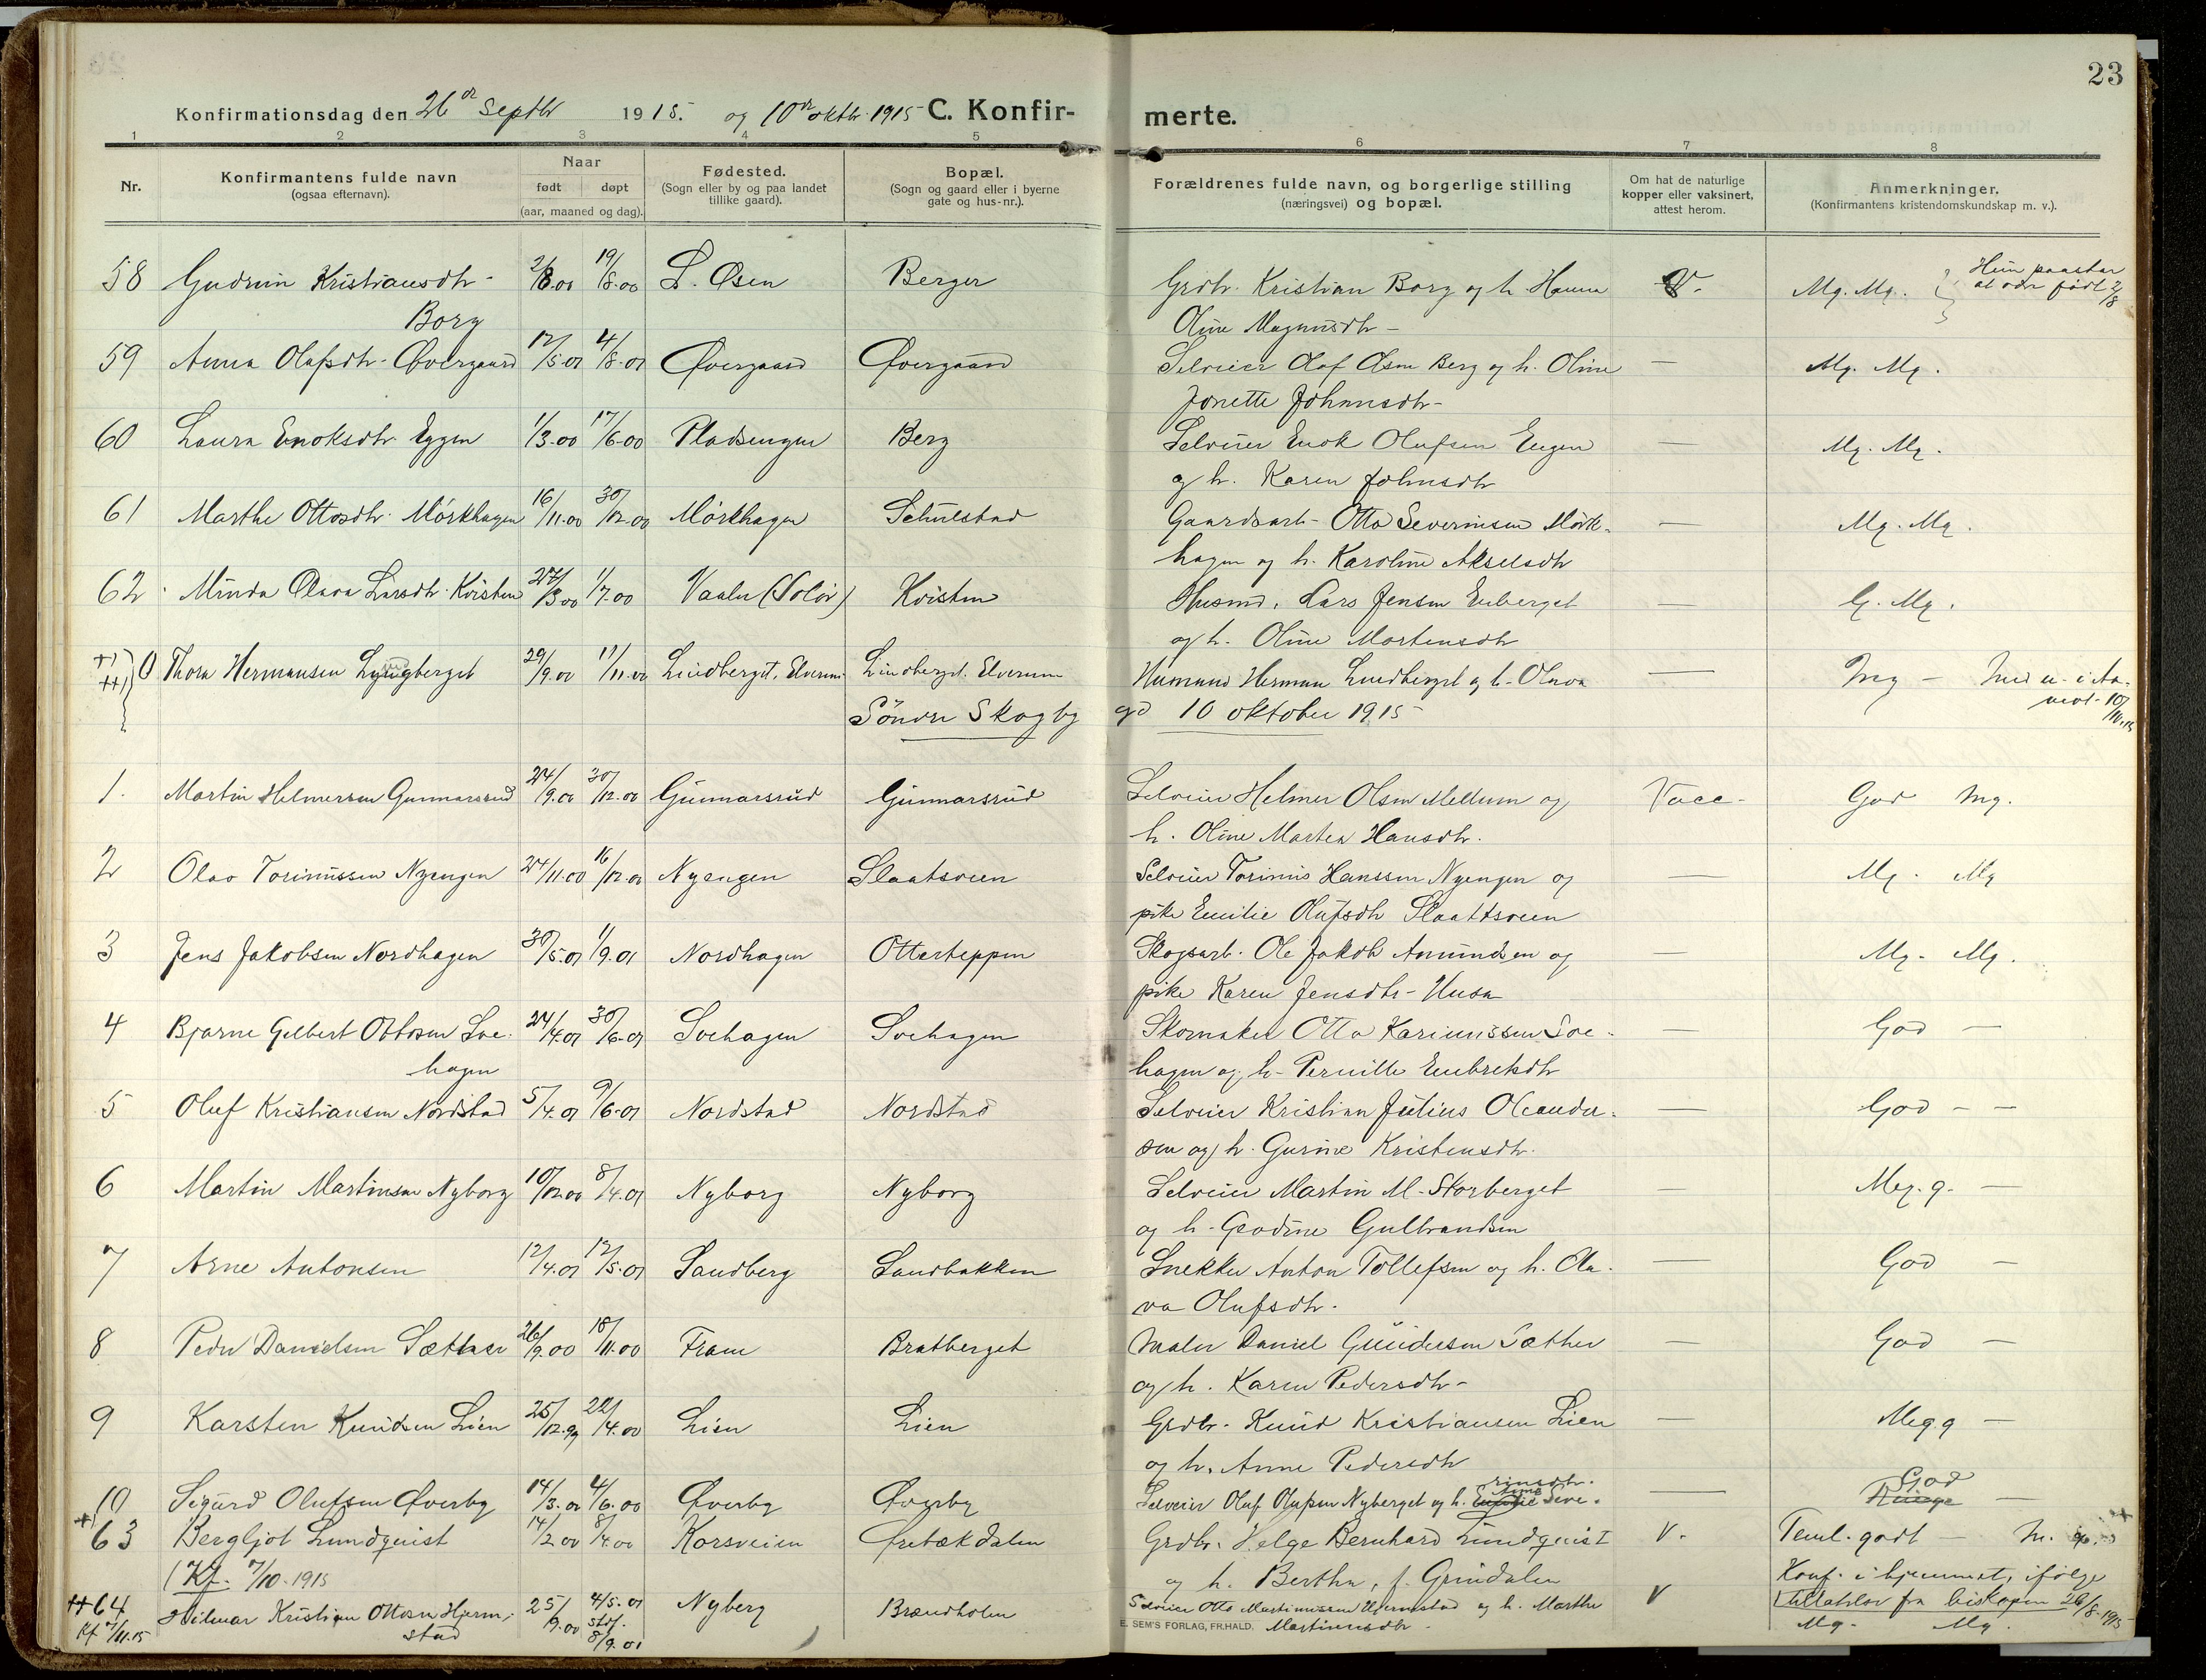 23
Konfirmationsdag den 26de Septbr 1915. og 10de oktbr. 1915 C. Konfirmerte.
1 2 3 4 5 6 7 8
Nr.
Konfirmantens fulde navn (ogsaa efternavn).
Naar født døpt (aar, maaned og dag).
Fødested. (Sogn eller by og paa landet tillike gaard).
Bopæl. (Sogn og gaard eller i byerne gate og hus-nr.).
Forældrenes fulde navn, og borgerlige stilling (næringsvei) og bopæl.
Om hat de naturlige kopper eller vaksinert, attest herom.
Anmerkninger. (Konfirmantens kristendomskundskap m. v.).
58 Gudrun Kristiansdtr. 2/8.00 19/8.00 L. Øsen Berger Grdbr. Kristian Borg og h. Hanna V. Mg. Mg.
Borg Oline Magnusdtr
59 Anna Olafsdtr. Øvergaard 12/5.01 4/8.01 Øvergaard Øvergaard Selveier Olaf Olsen Berg og h. Oline — Mg. Mg.
Jonette Johansdtr
60 Laura Enoksdtr. Eggen 1/3.00 17/6.00 Pladsengen Berg Selveier Enok Olufsen Engen — Mg. Mg.
og h. Karen Johnsdtr
61 Marthe Ottosdtr. Mørkhagen 16/11.00 30/12.00 Mørkhagen Schulstad Gaardsarb. Otto Severinsen Mørk- — Mg. Mg.
hagen og h. Karoline Akselsdtr
62 Minda Olava Larsdtr. Kvisten 27/3.00 1/7.00 Vaaler (Solør) Kvisten Husmd. Lars Jensen Enberget — G. Mg.
og h. Oline Mortensdtr
0 Thora Hermansen 29/9.00 11/11.00 Lindberget, Elverum Lindberget, Elverum Husmand Herman Lindberget og h. Olava — Mg
Søndre Skogbygd 10 oktober 1915
1. Martin Helmersen Gunnarsrud 24/9.00 30/12.00 Gunnarsrud Gunnarsrud Selveier Helmer Olsen Mellum og Vacc. God Mg.
h. Oline Martea Hansdtr.
2 Olav Torinussen Nyengen 24/11.00 16/12.00 Nyengen Slaatsveen Selveier Torinus Hanssen Nyengen og — Mg. Mg
pike Emilie Olufsdtr Slaattsveen
3 Jens Jakobsen Nordhagen 30/5.01 1/9.01 Nordhagen Otterteppen Skogsarb. Ole Jakob Amundsen og — Mg. Mg.
pike Karen Jensdtr. Husa
4 Bjarne Gelbert Ottosen Soe- 24/4.01 30/6.01 Soehagen Soehagen Skomaker Otto Karinussen Soe- — God —
hagen hagen og h. Pernille Embretsdtr
5 Oluf Kristiansen Nordstad 5/4.01 9/6.01 Nordstad Nordstad Selveier Kristian Julius Oleander- — God — —
sen og h. Gurine Kristensdtr.
6 Martin Martinsen Nyborg 10/12.00 8/4.01 Nyborg Nyborg Selveier Martin M. Storberget — Meg. g. —
og h. Gulbrandsen
7 Arne Antonsen 12/4.01 12/5.01 Sandberg Sandbakken Snekker Anton Tollefsen og h. Ola- — God —
va Olufsdtr.
8 Peder Danielsen Sætther 26/9.00 18/11.00 Fram Bratberget Maler Daniel Gundersen Sæther — God —
og h. Karen Pedersdtr
9 Karsten Knudsen Lien 25/12.99 22/4.00 Lien Lien Grdbr. Knud Kristiansen Lien — Meg. g —
og h. Anne Pedersdtr
10 Sigurd Olufsen Øverby 14/3.01 4/6.00 Øverby Øverby Selveier Oluf Olufsen Nyberget og h. Seve- rinsdtr. — God —
63 Bergljot Lundquist 14/2.00 8/4.00 Korsveien Øretækdalen Grdbr. Helge Bernhard Lundquist V. Teml. godt
(Kf. 7/10-1915 og h. Berthe, f. Grindalen Konf. i hjemmet, ifølge
++64 Hilmar Kristian Ottosen Hjerm- 25/9.00 4/5.01 Nyberg Brændholen Selveier Otto Martinussen Hjermstad og h. Marthe V tillatelse fra biskopen 26/8-1915
Kf 7/11.15 stad stdf. 8/9.01 Martinusdtr. Mg. Mg.
E. SEM'S FORLAG, FR.HALD.